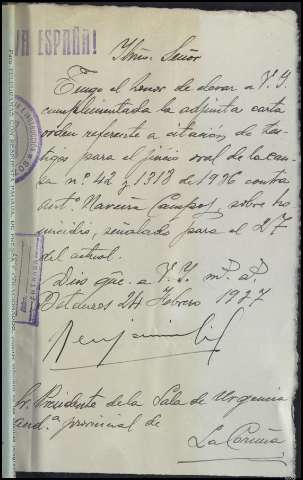 ¡A ESPAÑA!
Ilmo. Señor
Tengo el honor de elevar a V.I.
cumplimentada la adjunta carta
orden referente a citación de tes-
tigos para el juicio oral de la cau-
sa nº 42 y 1318 de 1936 contra
Antº Campos, sobre ho
micidio, señalado para el 27
del actual.
Dios gue. a V.I. m.s a.s
Betanzos 24 Febrero 1937
Sr. Presidente de la Sala de Urgencia
Aud.ª provincial de
La Coruña